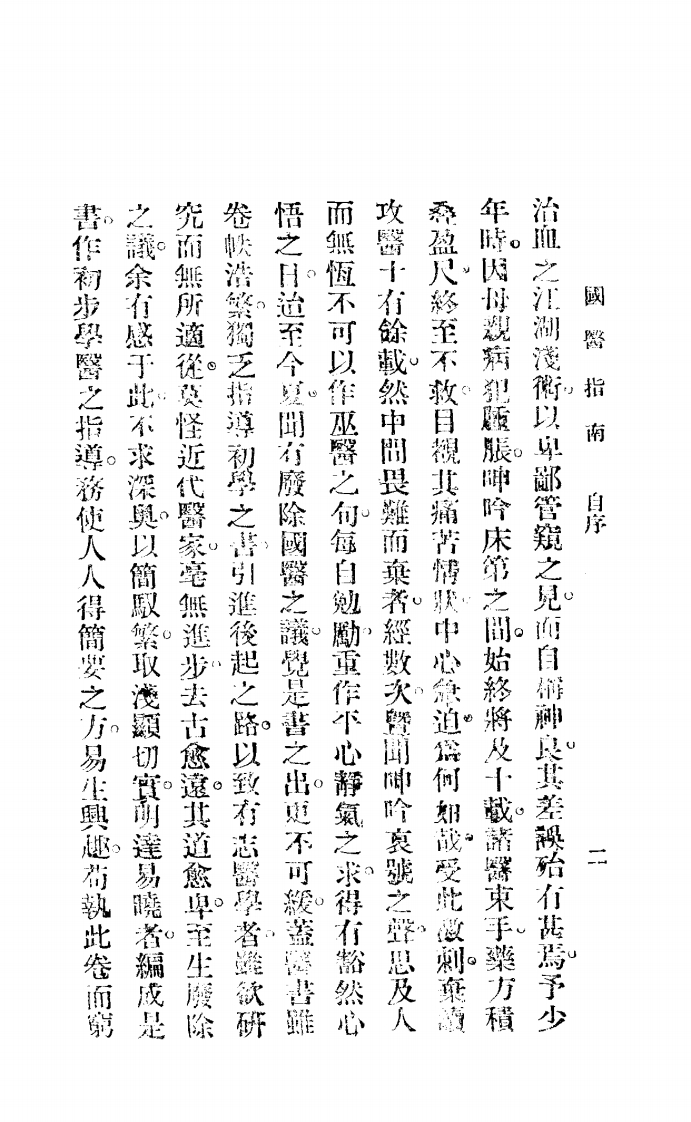 國醫指南 自序 二
治血之江湖淺術。以卑鄙管窺之見。而自稱神良。其差誤殆有甚焉。予少
年時。因母親病犯臌脹。呻吟床第之間。始終將及十載。諸醫束手。藥方積
叠盈尺。終至不救。目覩其痛苦情狀。中心急迫。爲何如哉。受此激刺。棄讀
攻醫。十有餘載。然中間畏難而棄者。經數次。暨聞呻吟哀號之聲。思及人
而無恆不可以作巫醫之句。每自勉勵。重作平心靜氣之求。得有豁然心
悟之日。迨至今夏。聞有廢除國醫之議。覺是書之出。更不可緩。蓋醫書雖
卷帙浩繁。獨乏指導初學之書。引進後起之路。以致有志醫學者。雖欲研
究而無所適從。莫怪近代醫家。毫無進步。去古愈遠。其道愈卑。至生廢除
之議。余有感于此。不求深奧。以簡馭繁。取淺顯切實。明達易曉者。編成是
書。作初步學醫之指導。務使人人得簡要之方。易生興趣。苟執此卷而窮